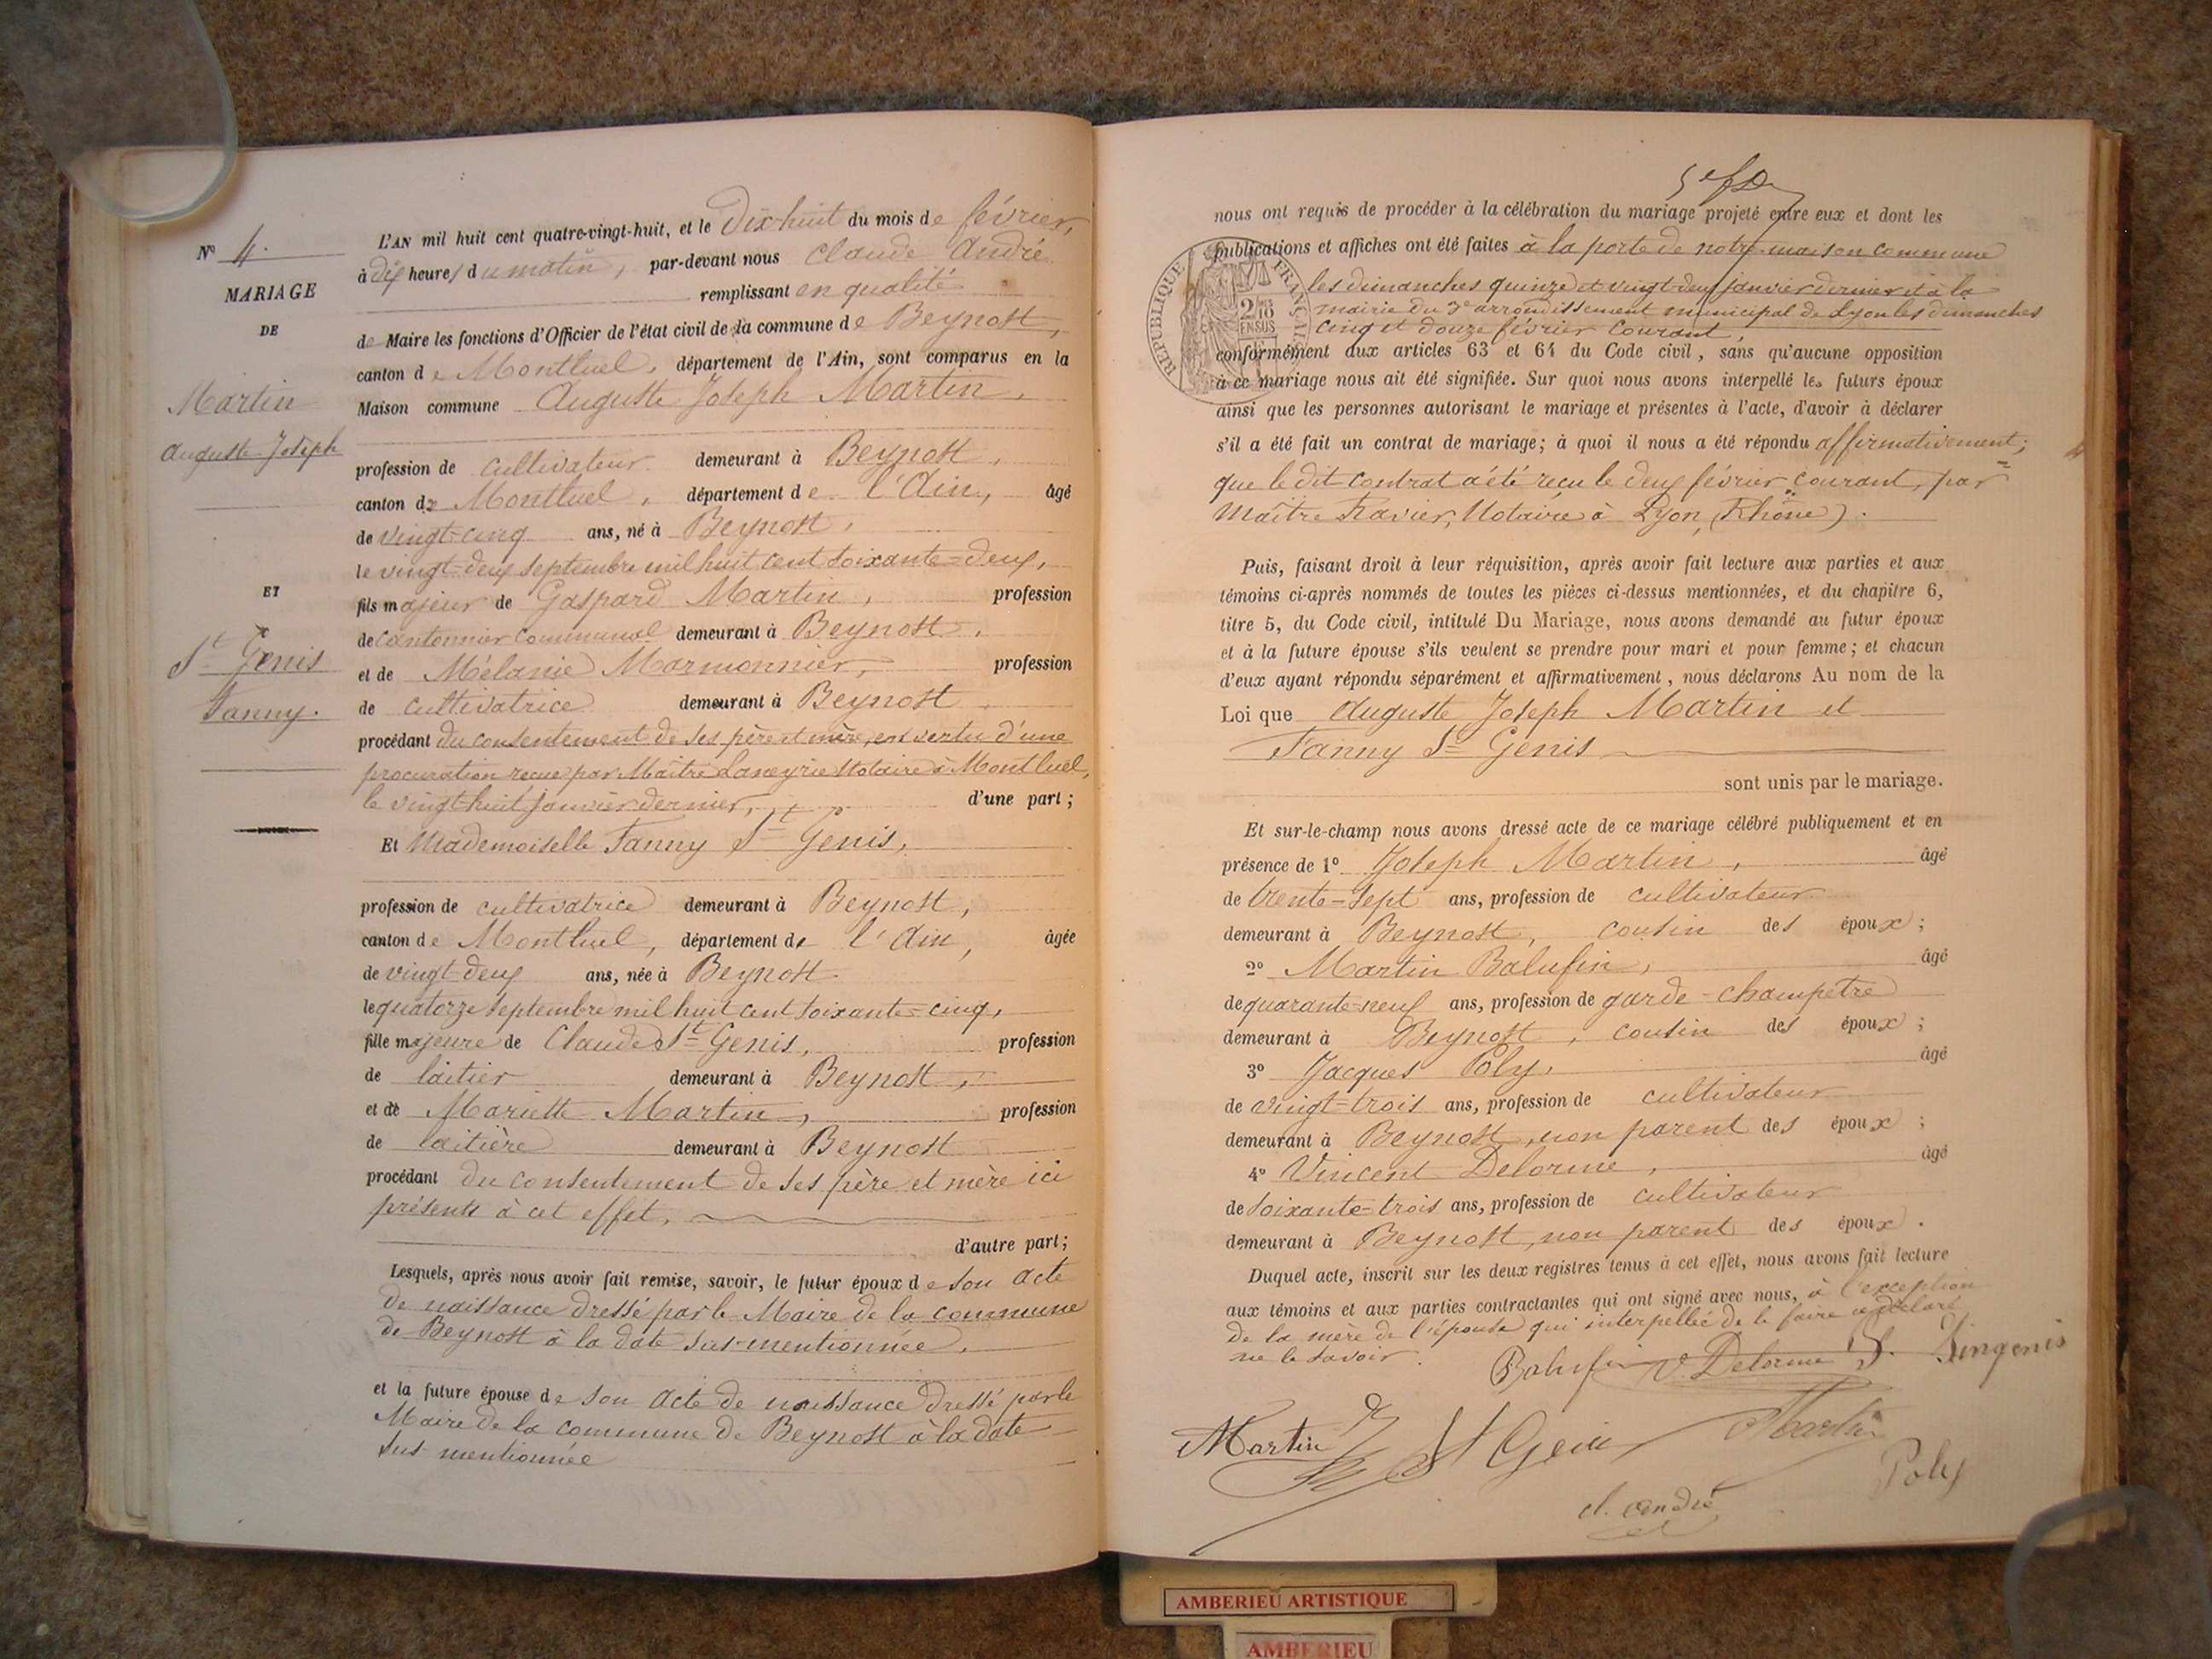 N° 4.
MARIAGE
DE
Martin
Auguste Joseph
ET
St Genis
Fanny.
L'AN mil huit cent quatre-vingt-huit, et le Dix-huit du mois de février,
à dix heures du matin, par-devant nous Claude André
remplissant en qualité
de Maire les fonctions d'Officier de l'état civil de la commune de Beynost,
canton de Montluel, département de l'Ain, sont comparus en la
Maison commune Auguste Joseph Martin,
profession de cultivateur demeurant à Beynost,
canton de Montluel, département de l'Ain, âgé
de vingt-cinq ans, né à Beynost,
le vingt-deux septembre mil huit cent soixante-deux,
fils majeur de Gaspard Martin, profession
de cantonnier communal demeurant à Beynost,
et de Mélanie Marmonnier, profession
de cultivatrice demeurant à Beynost
procédant du consentement de ses père et mère, en vertu d'une
procuration reçue par Maître Laneyrie Notaire à Montluel,
le vingt-huit janvier dernier, d'une part ;
Et Mademoiselle Fanny St Genis,
profession de cultivatrice demeurant à Beynost,
canton de Montluel, département de l'Ain, âgée
de vingt-deux ans, née à Beynost
le quatorze septembre mil huit cent soixante-cinq,
fille majeure de Claude St Genis, profession
de laitier demeurant à Beynost,
et de Mariette Martin, profession
de laitière demeurant à Beynost
procédant du consentement de ses père et mère ici
présents à cet effet,
d'autre part;
Lesquels, après nous avoir fait remise, savoir, le futur époux de son acte
de naissance dressé par le Maire de la commune
de Beynost à la date sus-mentionnée,
et la future épouse de son acte de naissance dressé par le
Maire de la commune de Beynost à la date
sus-mentionnée
nous ont requis de procéder à la célébration du mariage projeté entre eux et dont les
publications et affiches ont été faites à la porte de notre maison commune
les dimanches quinze et vingt-deux janvier dernier et à la
mairie du 3e arrondissement municipal de Lyon les dimanches
cinq et douze février courant,
RÉPUBLIQUE FRANÇAISE
2/10
EN SUS
conformément aux articles 63 et 64 du Code civil, sans qu'aucune opposition
à ce mariage nous ait été signifiée. Sur quoi nous avons interpellé les futurs époux
ainsi que les personnes autorisant le mariage et présentes à l'acte, d'avoir à déclarer
s'il a été fait un contrat de mariage; à quoi il nous a été répondu affirmativement;
que le dit contrat a été reçu le deux février courant, par
Maître Ravier, Notaire à Lyon (Rhône).
Puis, faisant droit à leur réquisition, après avoir fait lecture aux parties et aux
témoins ci-après nommés de toutes les pièces ci-dessus mentionnées, et du chapitre 6,
titre 5, du Code civil, intitulé Du Mariage, nous avons demandé au futur époux
et à la future épouse s'ils veulent se prendre pour mari et pour femme; et chacun
d'eux ayant répondu séparément et affirmativement, nous déclarons Au nom de la
Loi que Auguste Joseph Martin et
Fanny St Genis
sont unis par le mariage.
Et sur-le-champ nous avons dressé acte de ce mariage célébré publiquement et en
présence de 1° Joseph Martin, âgé
de trente-sept ans, profession de cultivateur
demeurant à Beynost, cousin des époux;
2° Martin Balufin, âgé
de quarante-neuf ans, profession de garde-champêtre
demeurant à Beynost, cousin des époux;
3° Jacques Poly, âgé
de vingt-trois ans, profession de cultivateur
demeurant à Beynost, non parent des époux;
4° Vincent Delorme, âgé
de soixante-trois ans, profession de cultivateur
demeurant à Beynost, non parent des époux.
Duquel acte, inscrit sur les deux registres tenus à cet effet, nous avons fait lecture
aux témoins et aux parties contractantes qui ont signé avec nous, à l'exception
de la mère de l'épouse qui interpellée de le faire a déclaré
ne le savoir.
Balufin V. Delorme S. Singenis
Martin St Genis Martin
Poly
cl. andré
AMBERIEU ARTISTIQUE
AMBERIEU